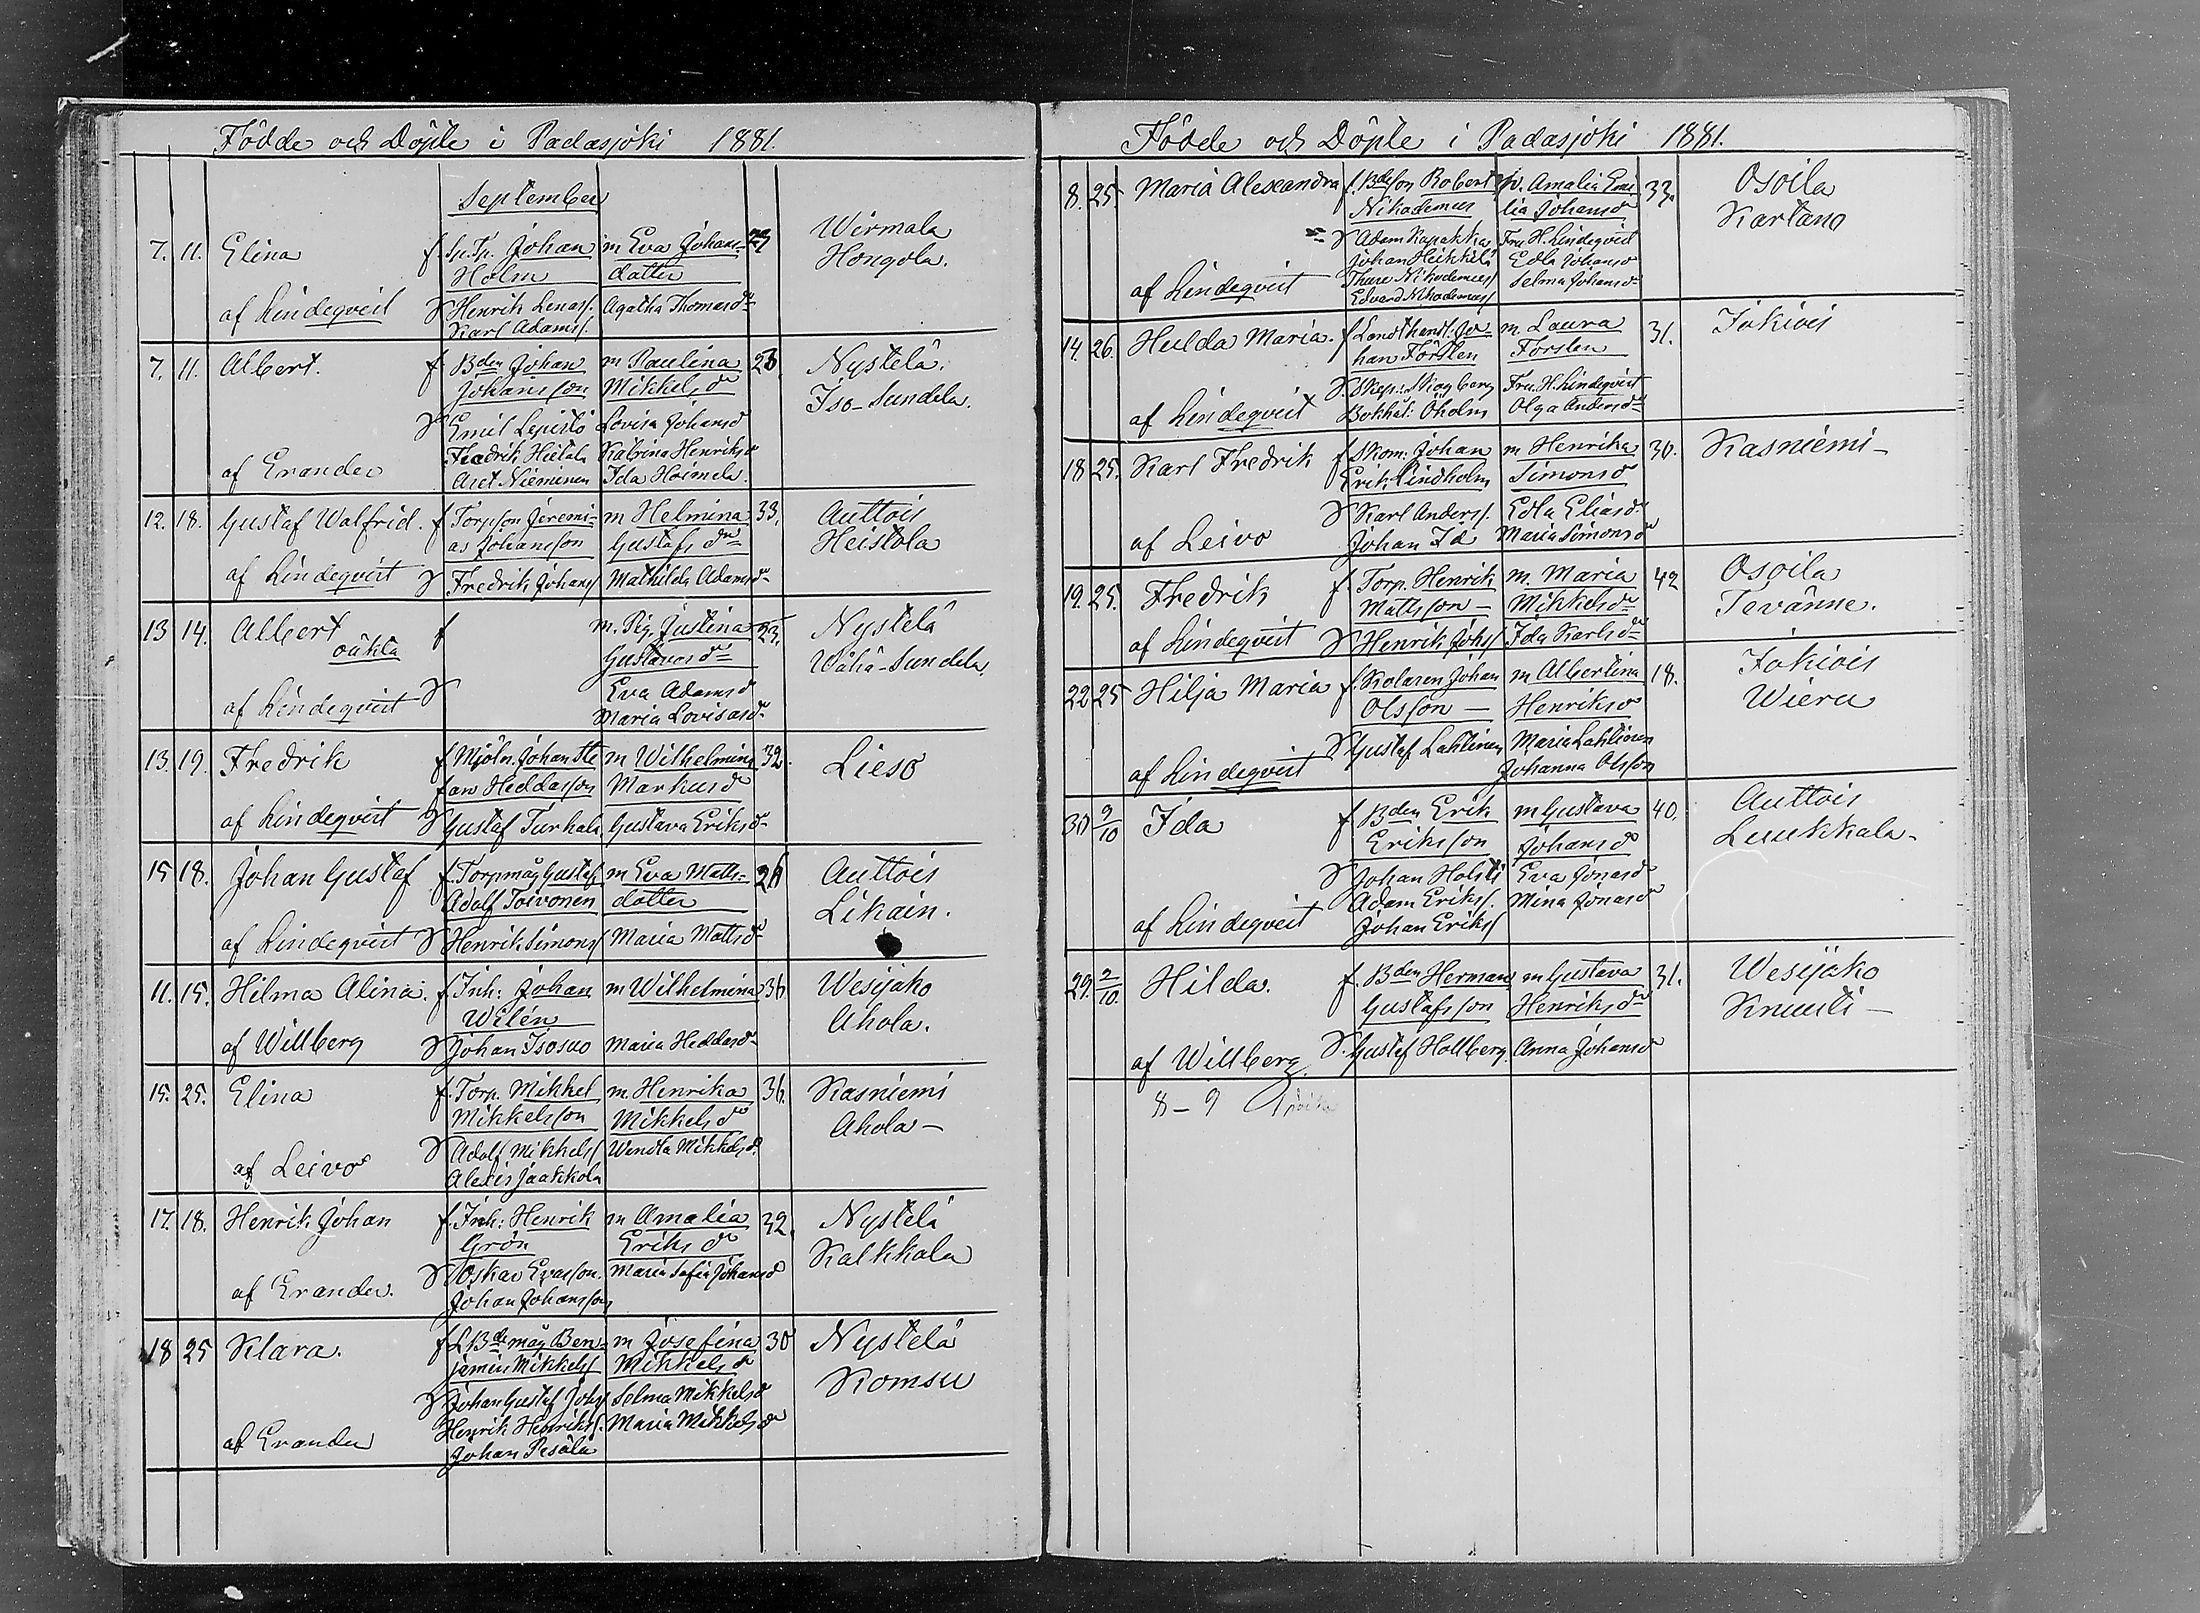 Födde och Döpte i Padasjoki 1881.
September
7. 11. Elina f Sp.Tp. Johan m Eva Johans- Wirmala
Holm dotter Hongola.
af Lindeqvist Henrik Lenass. Agatha Thomasdr
Karl Adamss.
7. 11. Albert. f Bden Johan m Paulina 23. Nystelä.
Johansson Mikkelsdr Iso-Sundela.
Emil Lepistö Lovisa Johansd
Fredrik Hietala Katrina Henriksd
af Erander Aret Nieminen Ida Heimela.
12. 18. Gustaf Walfrid. f Torpson Jeremi- m Helmina 33. Auttois
as Johansson Gustafsdr Heistola
af Lindeqvist Fredrik Johans Mathilda Adamsdr
13 14. Albert f m. Pig. Justina 23. Nystelä
oäkta Gustavasdr Wähä-Sundela.
Eva Adamsd
af Lindeqvist Maria Lovisasdr
13. 19. Fredrik f Mjöln. Johan Ste m Wilhelmina 32. Lieso
fan Heddasson Markusdr
af Lindeqvist Gustaf Turkala Gustava Eriksdr
15 18. Johan Gustaf f. Torpmåg Gustaf m Eva Matts- Auttois
Adolf Toivonen dotter Likain.
af Lindeqvist Henrik Simons Maria Mattsdr
11. 15. Hilma Alina. f. Inh: Johan m Wilhelmina 36. Wesijako
Wilén Ahola.
af Willberg Johan Isosuo Maria Heddasdr
15. 25. Elina f. Torp. Mikkel m. Henrika 36. Kasniemi
Mikkelsson Mikkelsdr Ahola-
Adolf Mikkels Wendla Mikkelsd.
af Leivo Alexis Jaakkola
17. 18. Henrik Johan f. Inh: Henrik m Amalia 32. Nystelä
Grön Eriksdr Kalkkala
Oskar Evasson. Maria Sofia Johansd
af Erander. Johan Johansson
18 25 Klara. f L Bdemåg Ben- m Josefina 30 Nystelä
jamin Mikkels Mikkelsdr Komsu
Johan Gustaf Johs Selma Mikkelsd
Henrik Henriks. Maria Mikkelsdr
af Erander Johan Pesälä
Födde och Döpte i Padasjoki 1881.
8. 25 Maria Alexandra f. Bdeson Robert Amalia Emi 33. Osoila
Nikodemus lia Johansdr Kartano
Adam Kapakka Fru H. Lindeqvist
Johan Heikkilä Edla Johansd
af Lindeqvist Thure Nikodemus Selma Johansdr
Edvard Nikodemus
14. 26. Hulda Maria. f Landthandl. Jo- m. Laura 31. Jokiois
han Forstén Forstén
Skep: Skogberg Fru. H. Lindeqvist
af Lindeqvist Bokhål: Öholm Olga Andersdr
18 25. Karl Fredrik f Skom: Johan m Henrika 30. Kasniemi-
Erik Lindholm Simonsd
Karl Anderss. Edla Eliasdr
af Leivo Johan Id Maria Simonsdr
19. 25. Fredrik f. Torp. Henrik m. Maria 42 Osoila
Mattsson- Mikkelsdr Tevänne.
af Lindeqvist Henrik Johs Ida Karlsdr
22 25 Hilja Maria f. Kolaren Johan m Albertina 18. Jokiois
Olsson- Henriksd Wieru
Gustaf Lahtinen Maria Lahtinen
af Lindeqvist Johanna Olsson
30 9/10 Ida f Bden Erik m Gustava 40. Auttois
Eriksson Johansd Luukkala-
Johan Holsti Eva Jonasd
Adam Eriks. Mina Jonasd
af Lindeqvist Johan Eriks
29. 2/10. Hilda. f. Bden Herman m Gustava 31. Wesijako
Gustafsson Henriksdr Knuuti-
af Willberg. Gustaf Hollberg. Anna Johansd
8-9